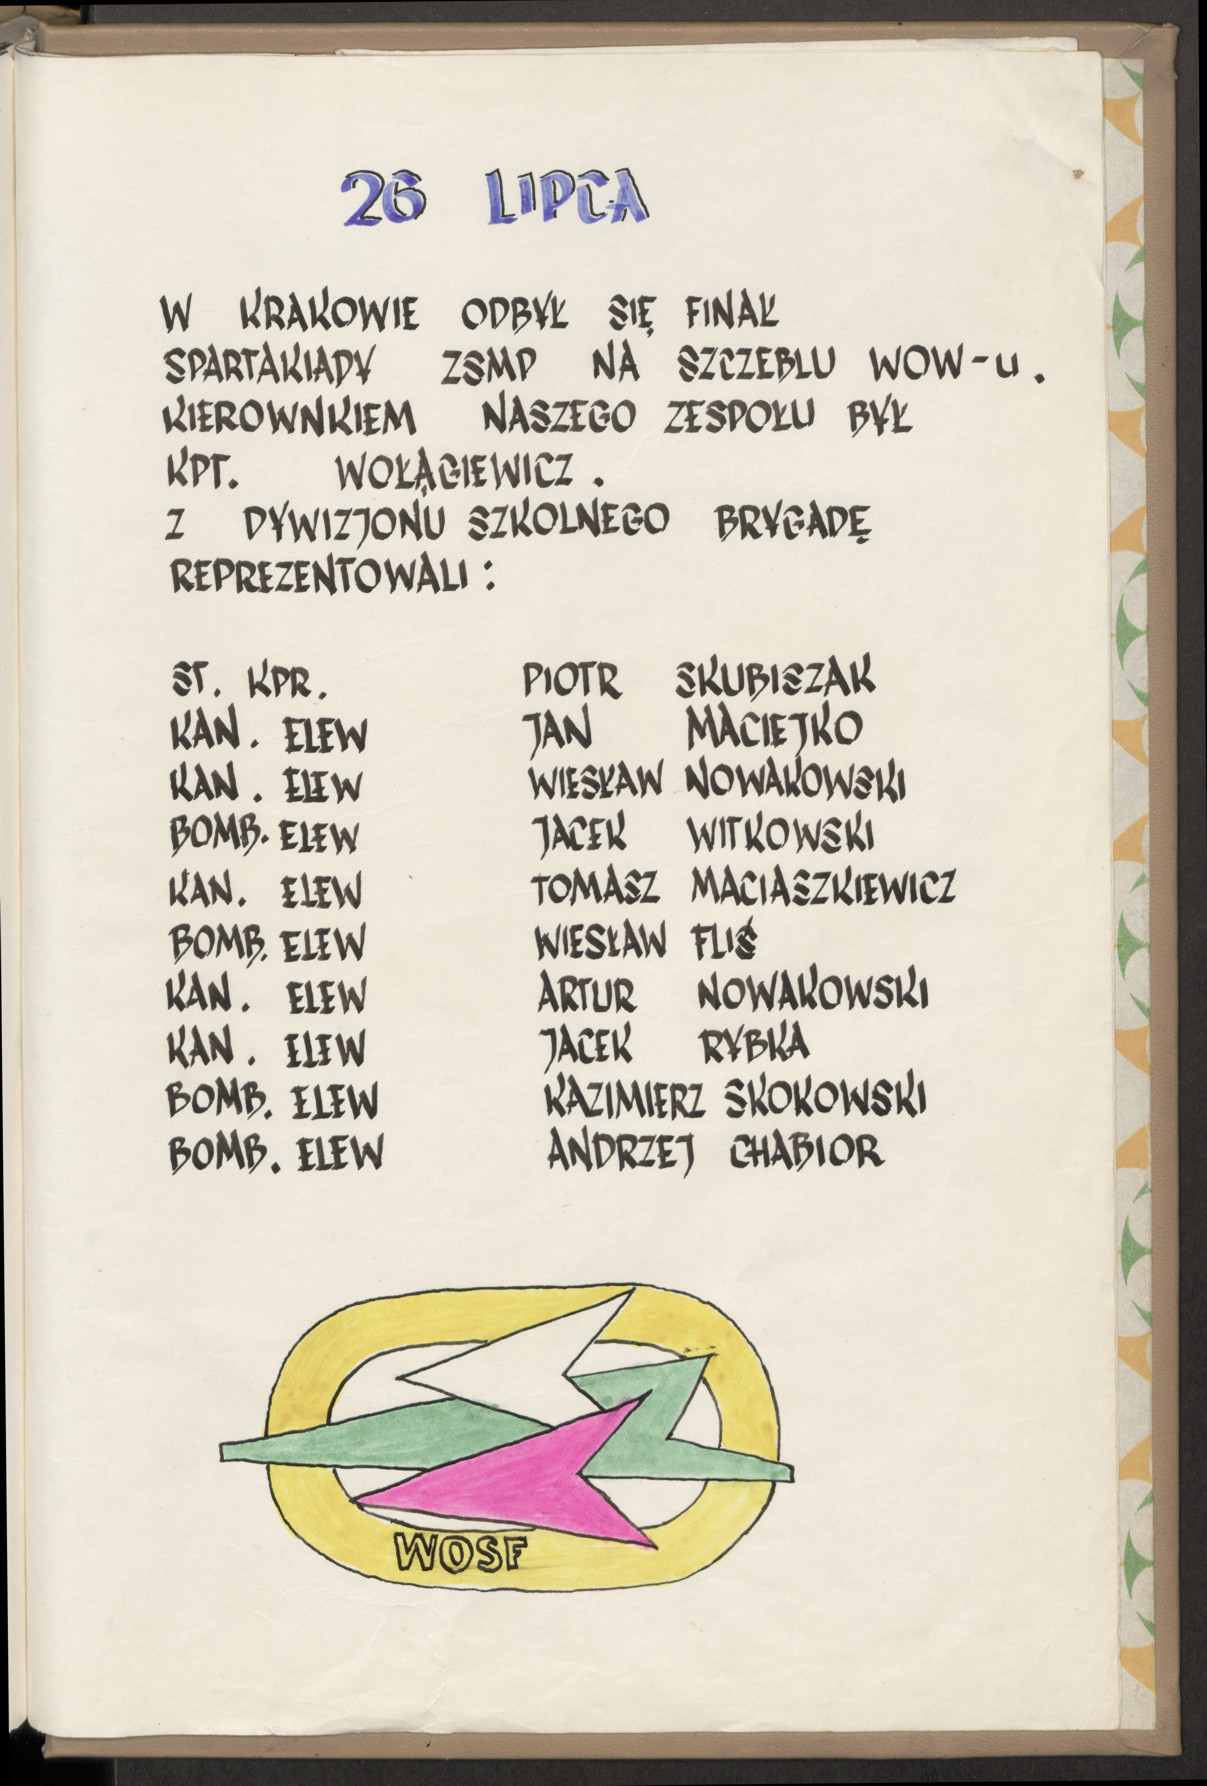 26 LIPCA
W KRAKOWIE ODBYŁ SIĘ FINAŁ
SPARTAKIADY ZSMP NA SZCZEBLU WOW-u.
KIEROWNKIEM NASZEGO ZESPOŁU BYŁ
KPT. WOŁĄGIEWICZ.
Z DYWIZJONU SZKOLNEGO BRYGADĘ
REPREZENTOWALI:
ST. KPR. PIOTR SKUBISZAK
KAN. ELEW JAN MACIEJKO
KAN. ELEW WIESŁAW NOWAKOWSKI
BOMB. ELEW JACEK WITKOWSKI
KAN. ELEW TOMASZ MACIASZKIEWICZ
BOMB. ELEW WIESŁAW FLIS
KAN. ELEW ARTUR NOWAKOWSKI
KAN. ELEW JACEK RYBKA
BOMB. ELEW KAZIMIERZ SKOKOWSKI
BOMB. ELEW ANDRZEJ CHABIOR
WOSF